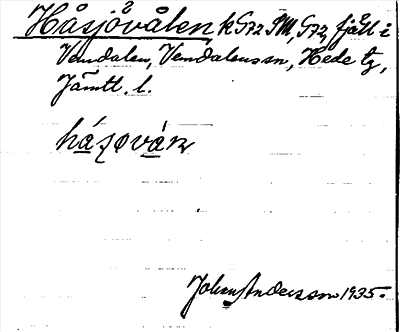 Håsjövålen k Gsz SM, Gsz, fjäll i
Vemdalen, Vemdalens sn, Hede tg,
Jämtl. l.
hásovàn
Johan Anderson 1935.